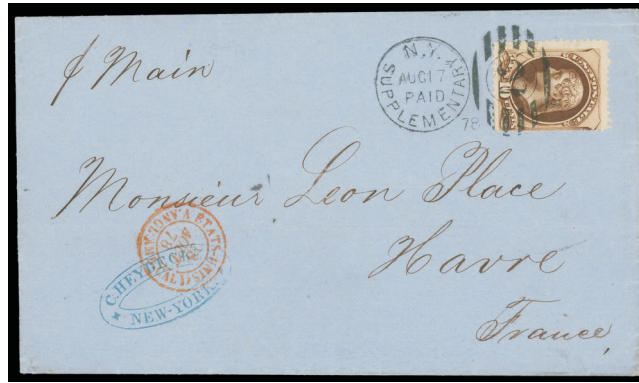 p Main
N.Y.
AUG 17
PAID
SUPPLEMENTARY
78
Monsieur Leon Place
Havre
France,
C. HEYDECKER
NEW-YORK.